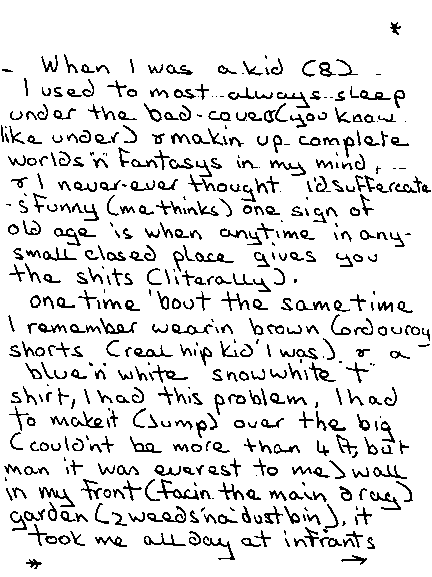 *
- When I was a kid (8) -
I used to most always sleep
under the bad-cover (you know
like under) & makin up complete
worlds 'n' fantasys in my mind,
& I never-ever thought I'd suffercate
-s'funny (me thinks) one sign of
old age is when anytime in any-
small closed place gives you
the shits (literally).
one time 'bout the same time
I remember wearin brown corduroy
shorts (real hip kid I was) & a
blue 'n' white snowwhite T
shirt, I had this problem, I had
to makeit (Jump) over the big
(could'nt be more than 4 ft, but
man it was everest to me) wall
in my front (facin the main drag)
garden (2 weeds 'n a dustbin), it
took me all day at infants
* →